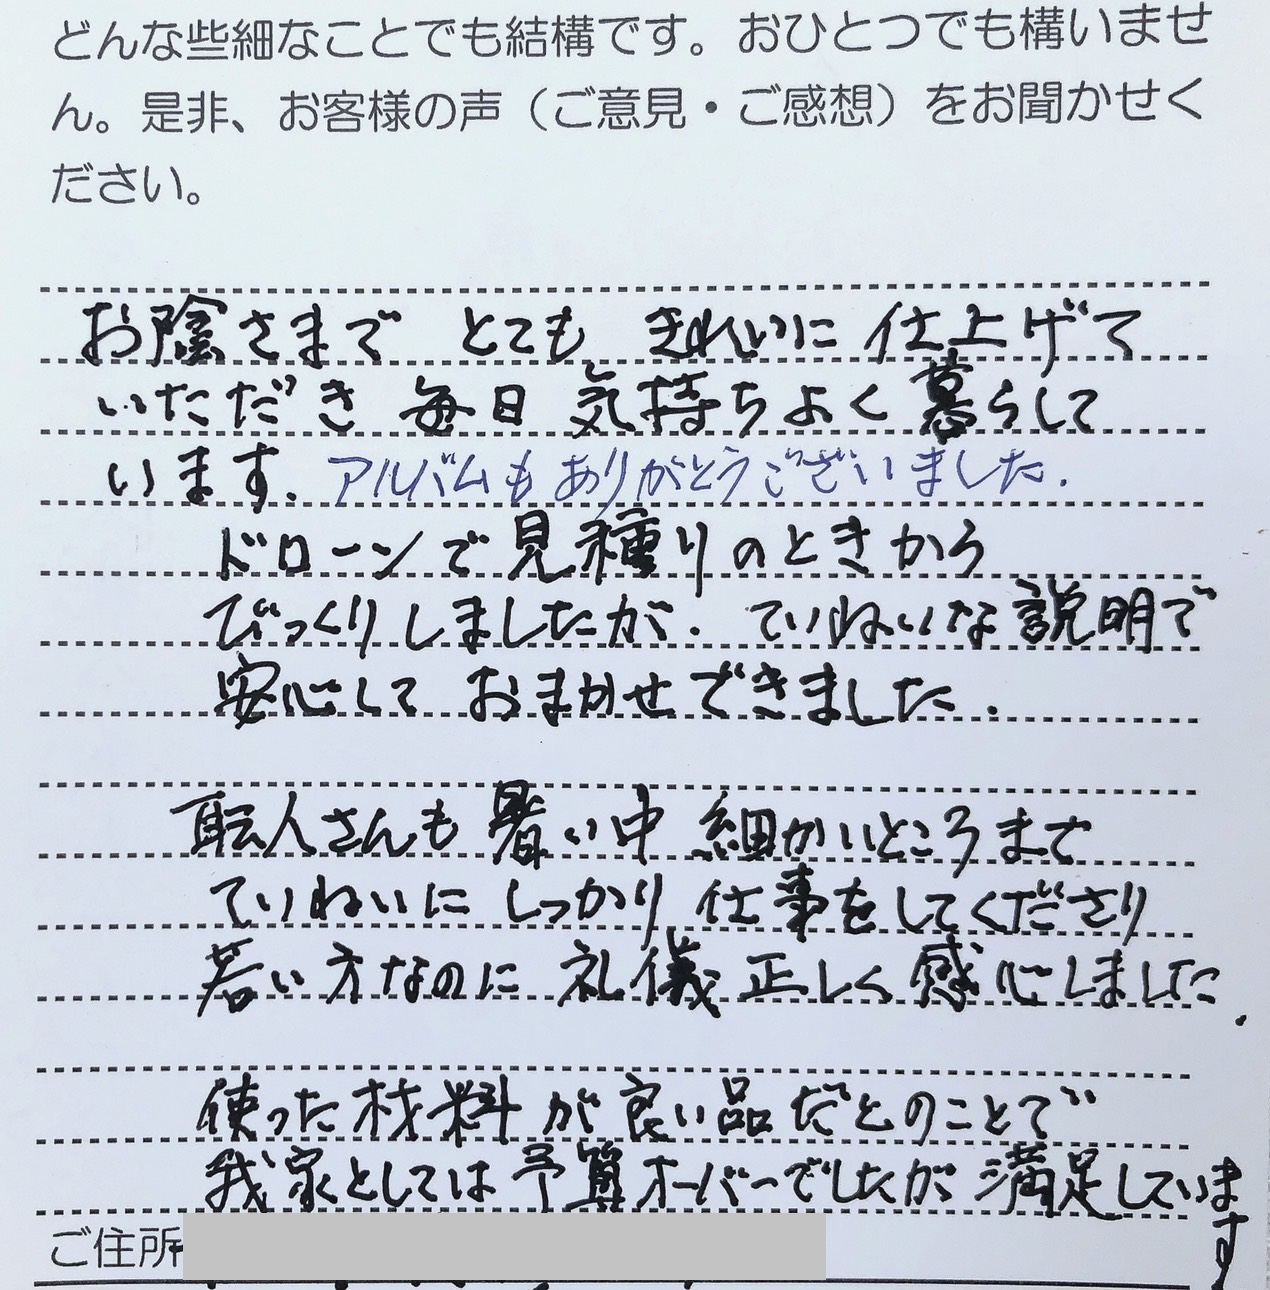 どんな些細なことでも結構です。おひとつでも構いませ
ん。是非、お客様の声（ご意見・ご感想）をお聞かせく
ださい。
お陰さまで とても きれいに 仕上げて
いただき 毎日 気持ちよく 暮らして
います. アルバムも ありがとうございました.
ドローンで 見積りのときから
びっくりしましたが. ていねいな 説明で
安心して おまかせできました.
職人さんも 暑い中 細かいところまで
ていねいに しっかり 仕事をしてくださり
若い方なのに 礼儀 正しく 感心しました.
使った材料が 良い品だとのことで
我家としては 予算オーバーでしたが 満足しています
ご住所